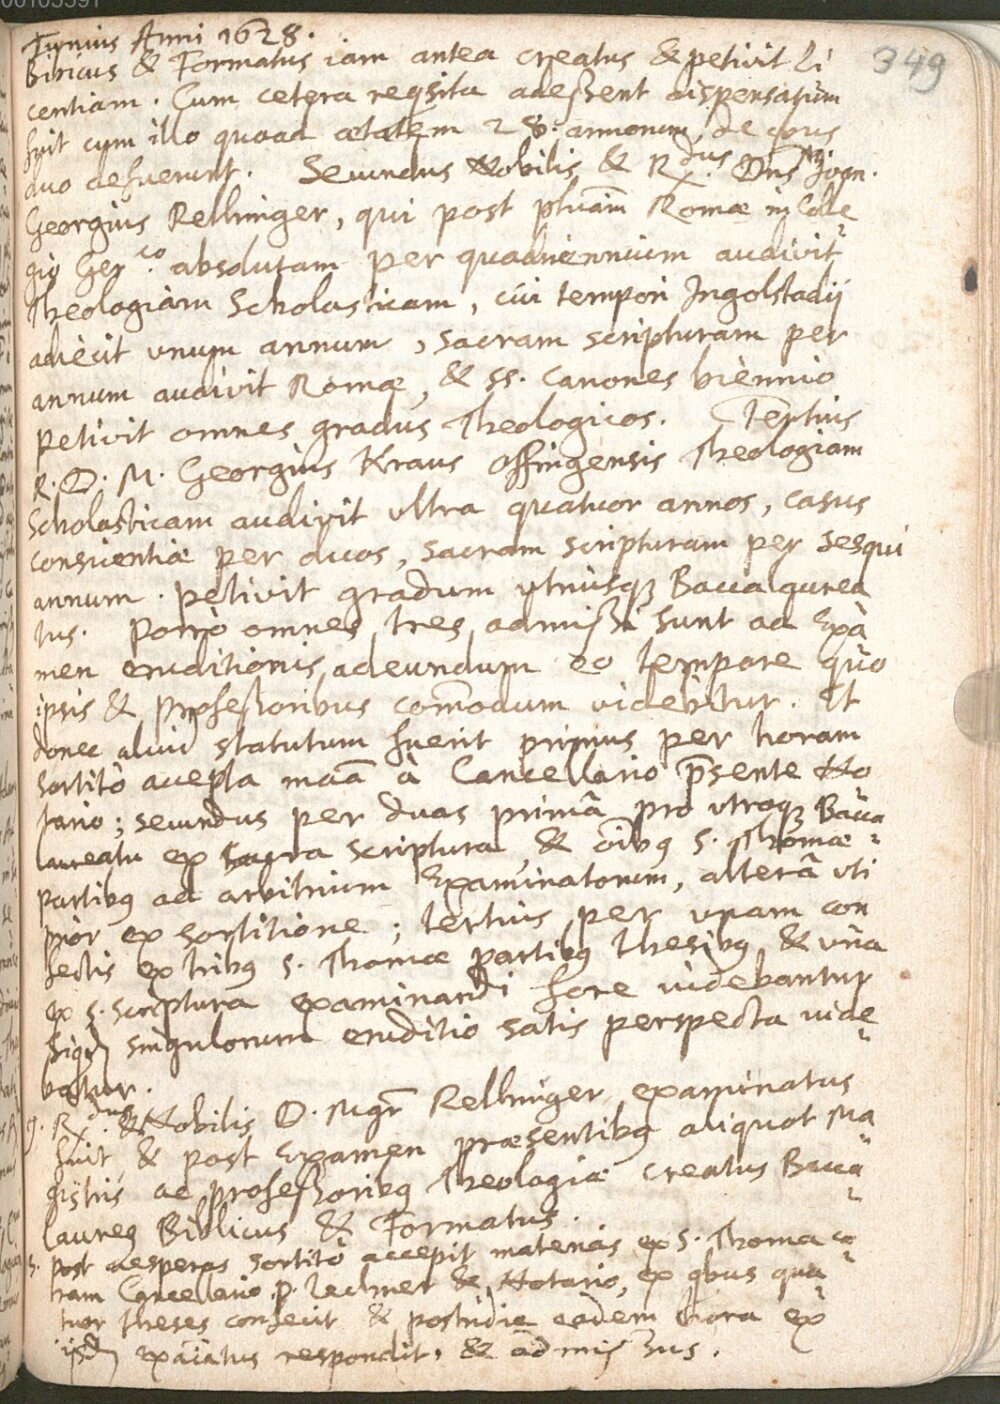 349
Junius Anni 1628.
Biblicus & Formatus iam antea creatus & petivit Li
centiam. Cum cetera reqsita adessent dispensatum
fuit cum illo quoad ætatem 28. annorum, de quis
duo defuerunt. Secundus Nobilis & Rx.dus Dns M. Joan.
Georgius Rellinger, qui post phiam Romæ in Colle
gio Ger.co absolutam per quadriennium audivit
Theologiam Scholasticam, cui tempori Ingolstadij
adiecit unum annum, sacram scripturam per
annum audivit Romæ, & SS. Canones biennio
petivit omnes gradus Theologicos. Tertius
R. D. M. Georgius Kraus Offingensis Theologiam
Scholasticam audivit ultra quatuor annos, casus
conscientiæ per duos, sacram scripturam per sesqui
annum. petivit gradum utriusq Baccalaurea
tus. Porrò omnes tres admissi sunt ad Exa
men eruditionis adeundum eo tempore quo
ipsis & professoribus commodum videbitur. Et
donec aliud statutum fuerit primus per horam
sortitò accepta maã à Cancellario psente No
tario; secundus per duas primã pro utroq Bacca
laureatu ex sacra scriptura & oibq S. Thomæ
partibq ad arbitrium Examinatorum, alterã uti
prior ex sortitione; tertius per unam con
fectis ex tribq S. Thomæ partibq thesibq & una
ex S. scriptura examinandi fore videbantur
siqd singulorum eruditio satis perspecta vide
batur.
9. Rx.dus & Nobilis D. Mgr Rellinger examinatus
fuit & post Examen præsentibq aliquot Ma
gistris ac professoribq Theologiæ creatus Bacca
laureq Biblicus & Formatus.
post vesperas sortitò accepit materias ex S. Thoma co
ram Cancellario P. Lechner & Notario, ex qbus qua
tuor theses confecit & postridie eadem hora ex
ijsd exaiatus respondit, & admissus.